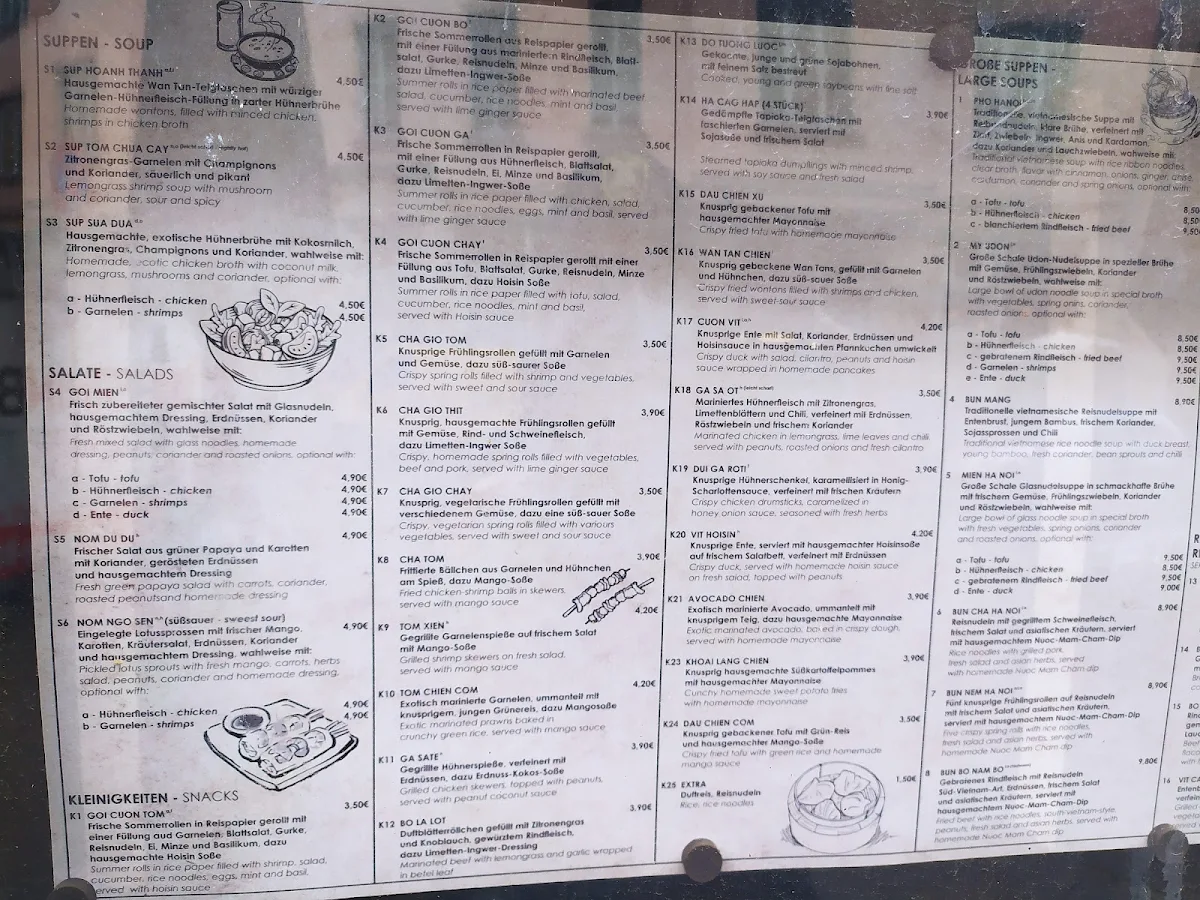 SUPPEN - SOUP
S1 SUP HOANH THANH
Hausgemachte Wan Tun-Teigtaschen mit würziger 4,50€
Garnelen-Hühnerfleisch-Füllung in zarter Hühnerbrühe
Homemade wontons, filled with minced chicken,
shrimps in chicken broth
S2 SUP TOM CHUA CAY 4,50€
Zitronengras-Garnelen mit Champignons
und Koriander, säuerlich und pikant
Lemongrass shrimp soup with mushroom
and coriander, sour and spicy
S3 SUP SUA DUA
Hausgemachte, exotische Hühnerbrühe mit Kokosmilch,
Zitronengras, Champignons und Koriander, wahlweise mit:
Homemade, exotic chicken broth with coconut milk,
lemongrass, mushrooms and coriander, optional with:
a - Hühnerfleisch - chicken 4,50€
b - Garnelen - shrimps 4,50€
SALATE - SALADS
S4 GOI MIEN
Frisch zubereiteter gemischter Salat mit Glasnudeln,
hausgemachtem Dressing, Erdnüssen, Koriander
und Röstzwiebeln, wahlweise mit:
Fresh mixed salad with glass noodles, homemade
dressing, peanuts, coriander and roasted onions, optional with:
a - Tofu - tofu 4,90€
b - Hühnerfleisch - chicken 4,90€
c - Garnelen - shrimps 4,90€
d - Ente - duck 4,90€
S5 NOM DU DU 4,90€
Frischer Salat aus grüner Papaya und Karotten
mit Koriander, gerösteten Erdnüssen
und hausgemachtem Dressing
Fresh green papaya salad with carrots, coriander,
roasted peanutsand homemade dressing
S6 NOM NGO SEN (süßsauer - sweest sour) 4,90€
Eingelegte Lotussprossen mit frischer Mango,
Karotten, Kräutersalat, Erdnüssen, Koriander
und hausgemachtem Dressing, wahlweise mit:
Pickled lotus sprouts with fresh mango, carrots, herbs
salad, peanuts, coriander and homemade dressing,
optional with:
a - Hühnerfleisch - chicken 4,90€
b - Garnelen - shrimps 4,90€
KLEINIGKEITEN - SNACKS
K1 GOI CUON TOM 3,50€
Frische Sommerrollen aus Reispapier gerollt mit
einer Füllung aud Garnelen, Blattsalat, Gurke,
Reisnudeln, Ei, Minze und Basilikum, dazu
hausgemachte Hoisin Soße
Summer rolls in rice paper filled with shrimp, salad,
cucumber, rice noodles, eggs, mint and basil,
served with hoisin sauce
K2 GOI CUON BO 3,50€
Frische Sommerrollen aus Reispapier gerollt,
mit einer Füllung aus mariniertem Rindfleisch, Blatt-
salat, Gurke, Reisnudeln, Minze und Basilikum,
dazu Limetten-Ingwer-Soße
Summer rolls in rice paper filled with marinated beef,
salad, cucumber, rice noodles, mint and basil
served with lime ginger sauce
K3 GOI CUON GA 3,50€
Frische Sommerrollen in Reispapier gerollt,
mit einer Füllung aus Hühnerfleisch, Blattsalat,
Gurke, Reisnudeln, Ei, Minze und Basilikum,
dazu Limetten-Ingwer-Soße
Summer rolls in rice paper filled with chicken, salad,
cucumber, rice noodles, eggs, mint and basil, served
with lime ginger sauce
K4 GOI CUON CHAY 3,50€
Frische Sommerrollen in Reispapier gerollt mit einer
Füllung aus Tofu, Blattsalat, Gurke, Reisnudeln, Minze
und Basilikum, dazu Hoisin Soße
Summer rolls in rice paper filled with tofu, salad,
cucumber, rice noodles, mint and basil,
served with Hoisin sauce
K5 CHA GIO TOM 3,50€
Knusprige Frühlingsrollen gefüllt mit Garnelen
und Gemüse, dazu süß-saurer Soße
Crispy spring rolls filled with shrimp and vegetables,
served with sweet and sour sauce
K6 CHA GIO THIT 3,90€
Knusprig, hausgemachte Frühlingsrollen gefüllt
mit Gemüse, Rind- und Schweinefleisch,
dazu Limetten-Ingwer Soße
Crispy, homemade spring rolls filled with vegetables,
beef and pork, served with lime ginger sauce
K7 CHA GIO CHAY 3,50€
Knusprig, vegetarische Frühlingsrollen gefüllt mit
verschiedenem Gemüse, dazu eine süß-sauer Soße
Crispy, vegetarian spring rolls filled with variours
vegetables, served with sweet and sour sauce
K8 CHA TOM 3,90€
Frittierte Bällchen aus Garnelen und Hühnchen
am Spieß, dazu Mango-Soße
Fried chicken-shrimp balls in skewers,
served with mango sauce
K9 TOM XIEN 4,20€
Gegrillte Garnelenspieße auf frischem Salat
mit Mango-Soße
Grilled shrimp skewers on fresh salad,
served with mango sauce
K10 TOM CHIEN COM 4,20€
Exotisch marinierte Garnelen, ummantelt mit
knusprigem, jungen Grünereis, dazu Mangosoße
Exotic marinated prawns baked in
crunchy green rice, served with mango sauce
K11 GA SATE 3,90€
Gegrillte Hühnerspieße, verfeinert mit
Erdnüssen, dazu Erdnuss-Kokos-Soße
Grilled chicken skewers, topped with peanuts,
served with peanut coconut sauce
K12 BO LA LOT 3,90€
Duftblätterröllchen gefüllt mit Zitronengras
und Knoblauch, gewürztem Rindfleisch,
dazu Limetten-Ingwer-Dressing
Marinated beef with lemongrass and garlic wrapped
in betel leaf
K13 DO TUONG LUOC
Gekochte, junge und grüne Sojabohnen,
mit feinem Salz bestreut
Cooked, young and green soybeans with fine salt
K14 HA CAO HAP (4 STÜCK) 3,90€
Gedämpfte Tapioka-Teigtaschen mit
faschierten Garnelen, serviert mit
Sojasoße und frischem Salat
Steamed tapioka dumplings with minced shrimp,
served with soy sauce and fresh salad
K15 DAU CHIEN XU 3,50€
Knusprig gebackener Tofu mit
hausgemachter Mayonnaise
Crispy fried tofu with homemade mayonnaise
K16 WAN TAN CHIEN 3,50€
Knusprig gebackene Wan Tans, gefüllt mit Garnelen
und Hühnchen, dazu süß-saur Soße
Crispy fried wontons filled with shrimps and chicken,
served with sweet-sour sauce
K17 CUON VIT 4,20€
Knusprige Ente mit Salat, Koriander, Erdnüssen und
Hoisinsauce in hausgemachten Pfannkuchen umwickelt
Crispy duck with salad, cilantro, peanuts and hoisin
sauce wrapped in homemade pancakes
K18 GA SA OT 3,50€
Mariniertes Hühnerfleisch mit Zitronengras,
Limettenblättern und Chili, verfeinert mit Erdnüssen,
Röstzwiebeln und frischem Koriander
Marinated chicken in lemongrass, lime leaves and chili
served with peanuts, roasted onions and fresh cilantro
K19 DUI GA ROTI 3,90€
Knusprige Hühnerschenkel, karamellisiert in Honig-
Scharlottensauce, verfeinert mit frischen Kräutern
Crispy chicken drumsticks, caramelized in
honey onion sauce, seasoned with fresh herbs
K20 VIT HOISIN 4.20€
Knusprige Ente, serviert mit hausgemachter Hoisinsoße
auf frischem Salatbett, verfeinert mit Erdnüssen
Crispy duck, served with homemade hoisin sauce
on fresh salad, topped with peanuts
K21 AVOCADO CHIEN 3,90€
Exotisch marinierte Avocado, ummantelt mit
knusprigem Teig, dazu hausgemachte Mayonnaise
Exotic marinated avocado, baked in crispy dough,
served with homemade mayonnaise
K23 KHOAI LANG CHIEN 3,90€
Knusprig hausgemachte Süßkartoffelpommes
mit hausgemachter Mayonnaise
Crunchy homemade sweet potato fries
with homemade mayonnaise
K24 DAU CHIEN COM 3.50€
Knusprig gebackener Tofu mit Grün-Reis
und hausgemachter Mango-Soße
Crispy fried tofu with green rice and homemade
mango sauce
K25 EXTRA 1,50€
Duftreis, Reisnudeln
Rice, rice noodles
GROßE SUPPEN -
LARGE SOUPS
1 PHO HANOI
Traditionelle, vietnamesische Suppe mit
Reisbandnudeln, klare Brühe, verfeinert mit
Zimt, Zwiebeln, Ingwer, Anis und Kardamon,
dazu Koriander und Lauchzwiebeln, wahlweise mit:
Traditional vietnamese soup with rice ribbon noodles,
clear broth, flavor with cinnamon, onions, ginger, anise,
cardamon, coriander and spring onions, optional with
a - Tofu - tofu 8,50
b - Hühnerfleisch - chicken 8,50
c - blanchiertem Rindfleisch - fried beef 9,50
2 MY UDON
Große Schale Udon-Nudelsuppe in spezieller Brühe
mit Gemüse, Frühlingszwiebeln, Koriander
und Röstzwiebeln, wahlweise mit:
Large bowl of udon noodle soup in special broth
with vegetables, spring onins, coriander,
roasted onins, optional with:
a - Tofu - tofu 8,50€
b - Hühnerfleisch - chicken 8,50€
c - gebratenem Rindfleisch - fried beef 9,50€
d - Garnelen - shrimps 9.50€
e - Ente - duck 9.50€
4 BUN MANG 8,90€
Traditionelle vietnamesische Reisnudelsuppe mit
Entenbrust, jungem Bambus, frischem Koriander,
Sojassprossen und Chili
Traditional vietnamese rice noodle soup with duck breast,
young bamboo, fresh coriander, bean sprouts and chilli
5 MIEN HA NOI
Große Schale Glasnudelsuppe in schmackhafte Brühe
mit frischem Gemüse, Frühlingszwiebeln, Koriander
und Röstzwiebeln, wahlweise mit:
Large bowl of glass noodle soup in special broth
with fresh vegetables, spring onions, coriander
and roasted onions, optional with:
a - Tofu - tofu 9,50€
b - Hühnerfleisch - chicken 8,50€
c - gebratenem Rindfleisch - fried beef 9,50€
d - Ente - duck 9,00€
6 BUN CHA HA NOI 8,90€
Reisnudeln mit gegrilltem Schweinefleisch,
frischem Salat und asiatischen Kräutern, serviert
mit hausgemachtem Nuoc-Mam-Cham-Dip
Rice noodles with grilled pork,
fresh salad and asian herbs, served
with homemade Nuoc Mam Cham dip
7 BUN NEM HA NOI 8,90€
Fünf knusprige Frühlingsrollen auf Reisnudeln
mit frischem Salat und asiatischen Kräutern,
serviert mit hausgemachtem Nuoc-Mam-Cham-Dip
Five crispy spring rolls with rice noodles,
fresh salad and asian herbs, served with
homemade Nuoc Mam Cham dip
8 BUN BO NAM BO 9.80€
Gebratenes Rindfleisch mit Reisnudeln
Süd-Vietnam-Art, Erdnüssen, frischem Salat
und asiatischen Kräutern, serviert mit
hausgemachtem Nuoc-Mam-Cham-Dip
Fried beef with rice noodles, south vietnam-style,
peanuts, fresh salad and asian herbs, served with
homemade Nuoc Mam Cham dip
13
14
15 BO
16 VIT CA